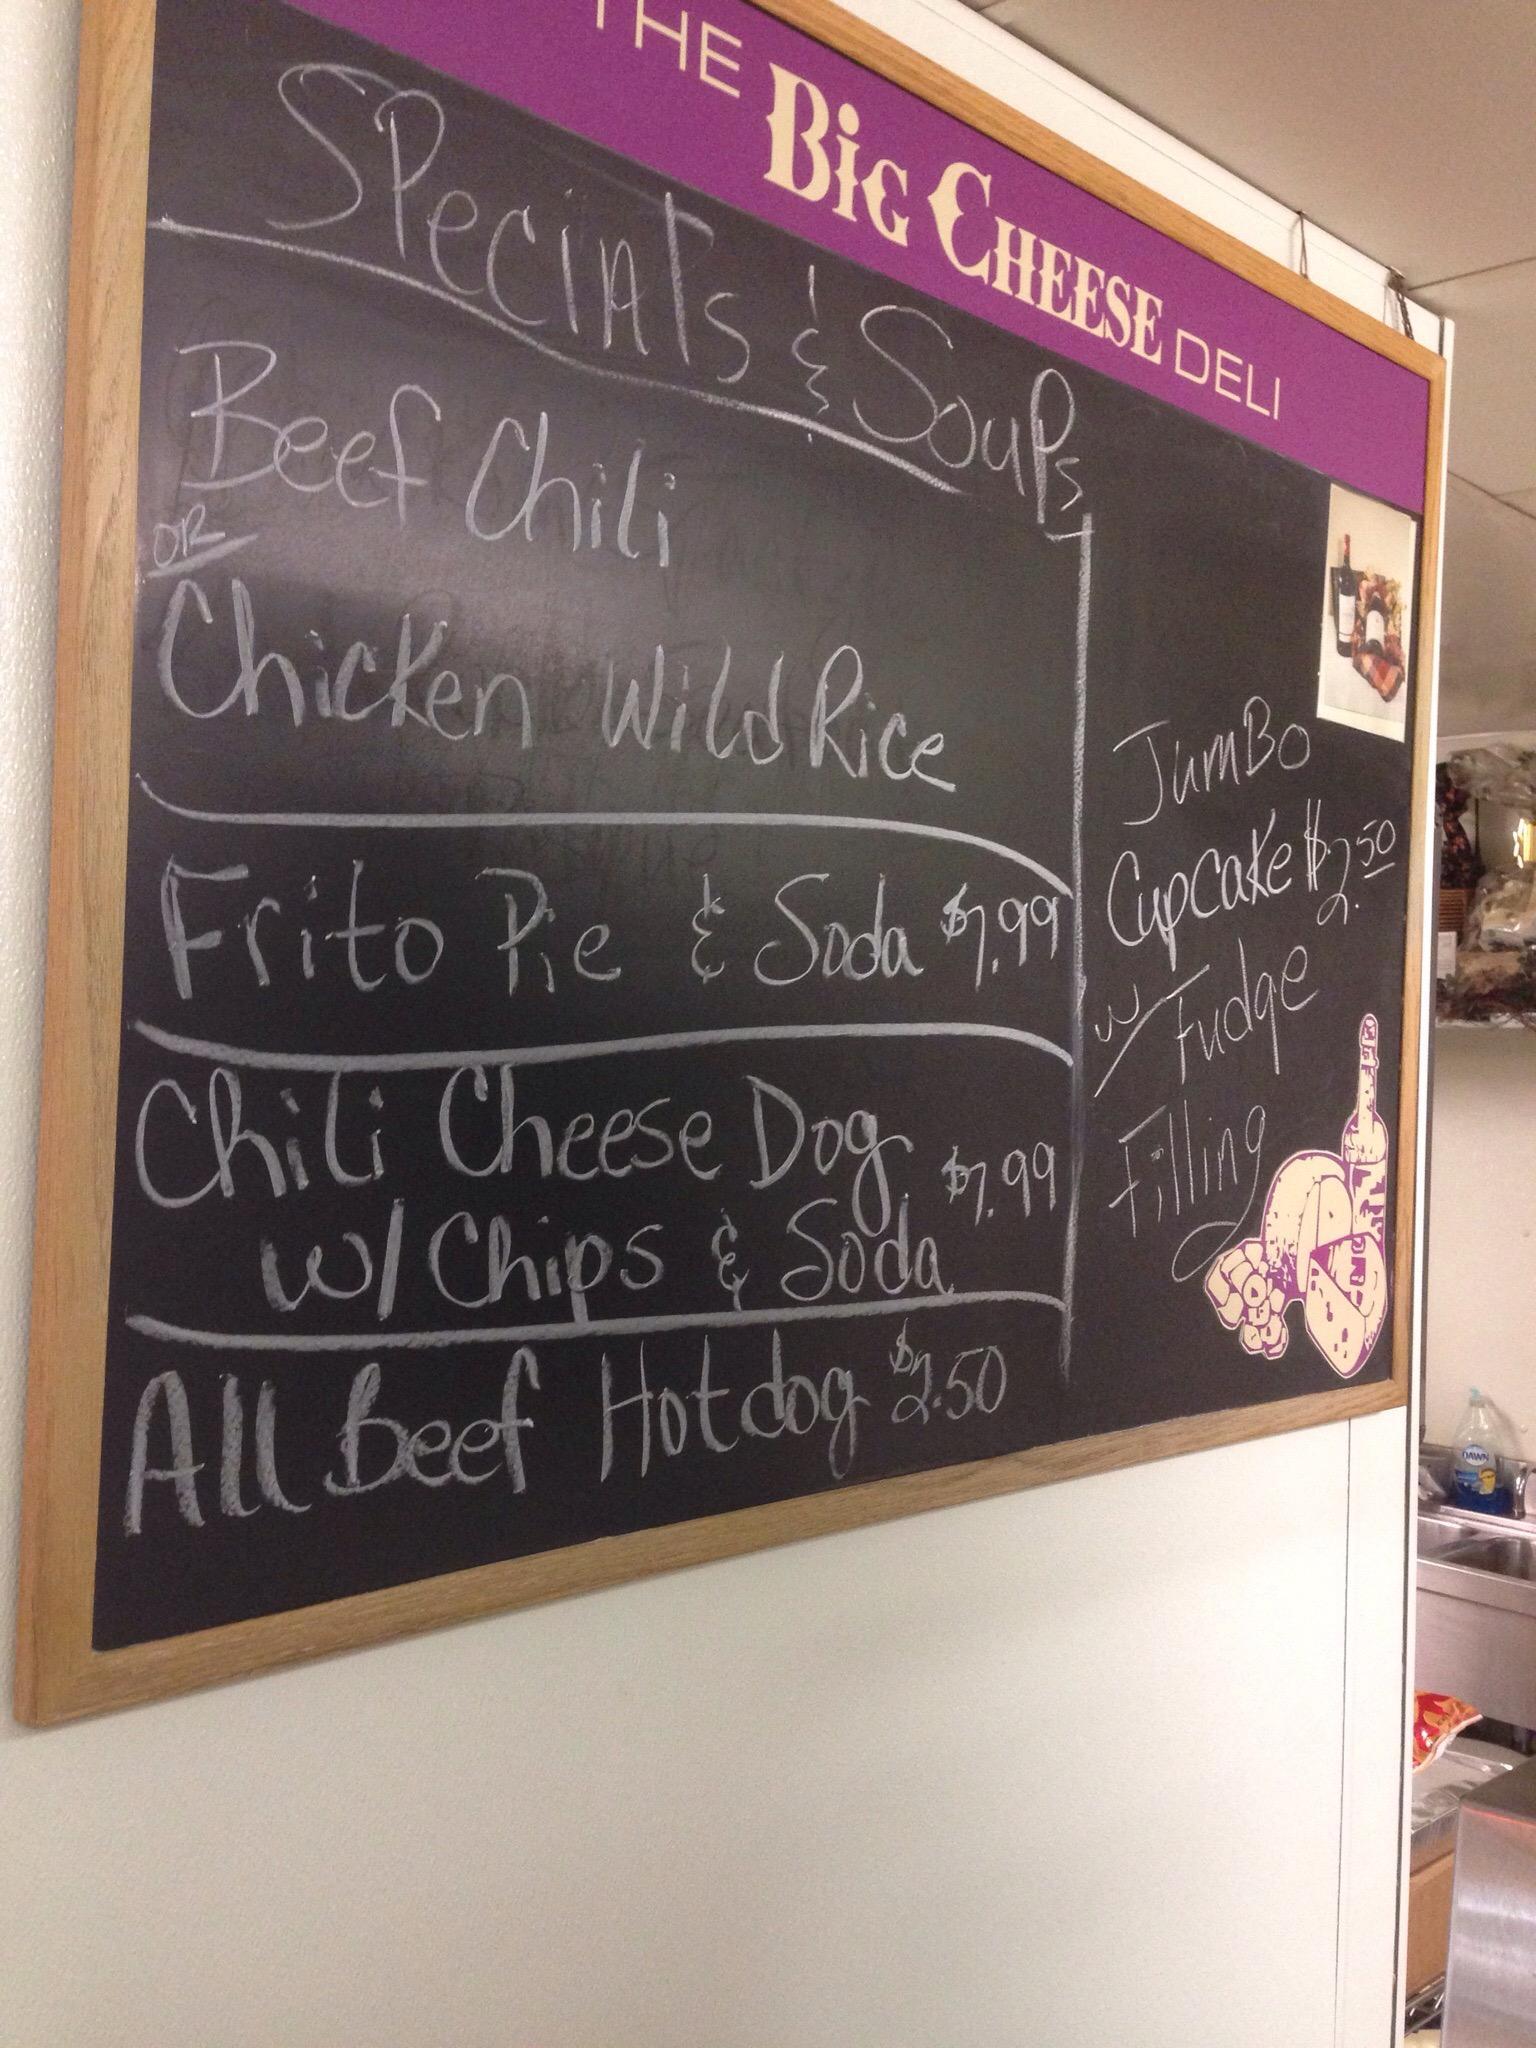 THE BIG CHEESE DELI
Specials & Soups
Beef Chili
OR
Chicken Wild Rice
Frito Pie & Soda $7.99
Chili Cheese Dog $7.99
w/ Chips & Soda
All Beef Hotdog $2.50
Jumbo
Cupcake $2.50
w/ Fudge
Filling
DAWN